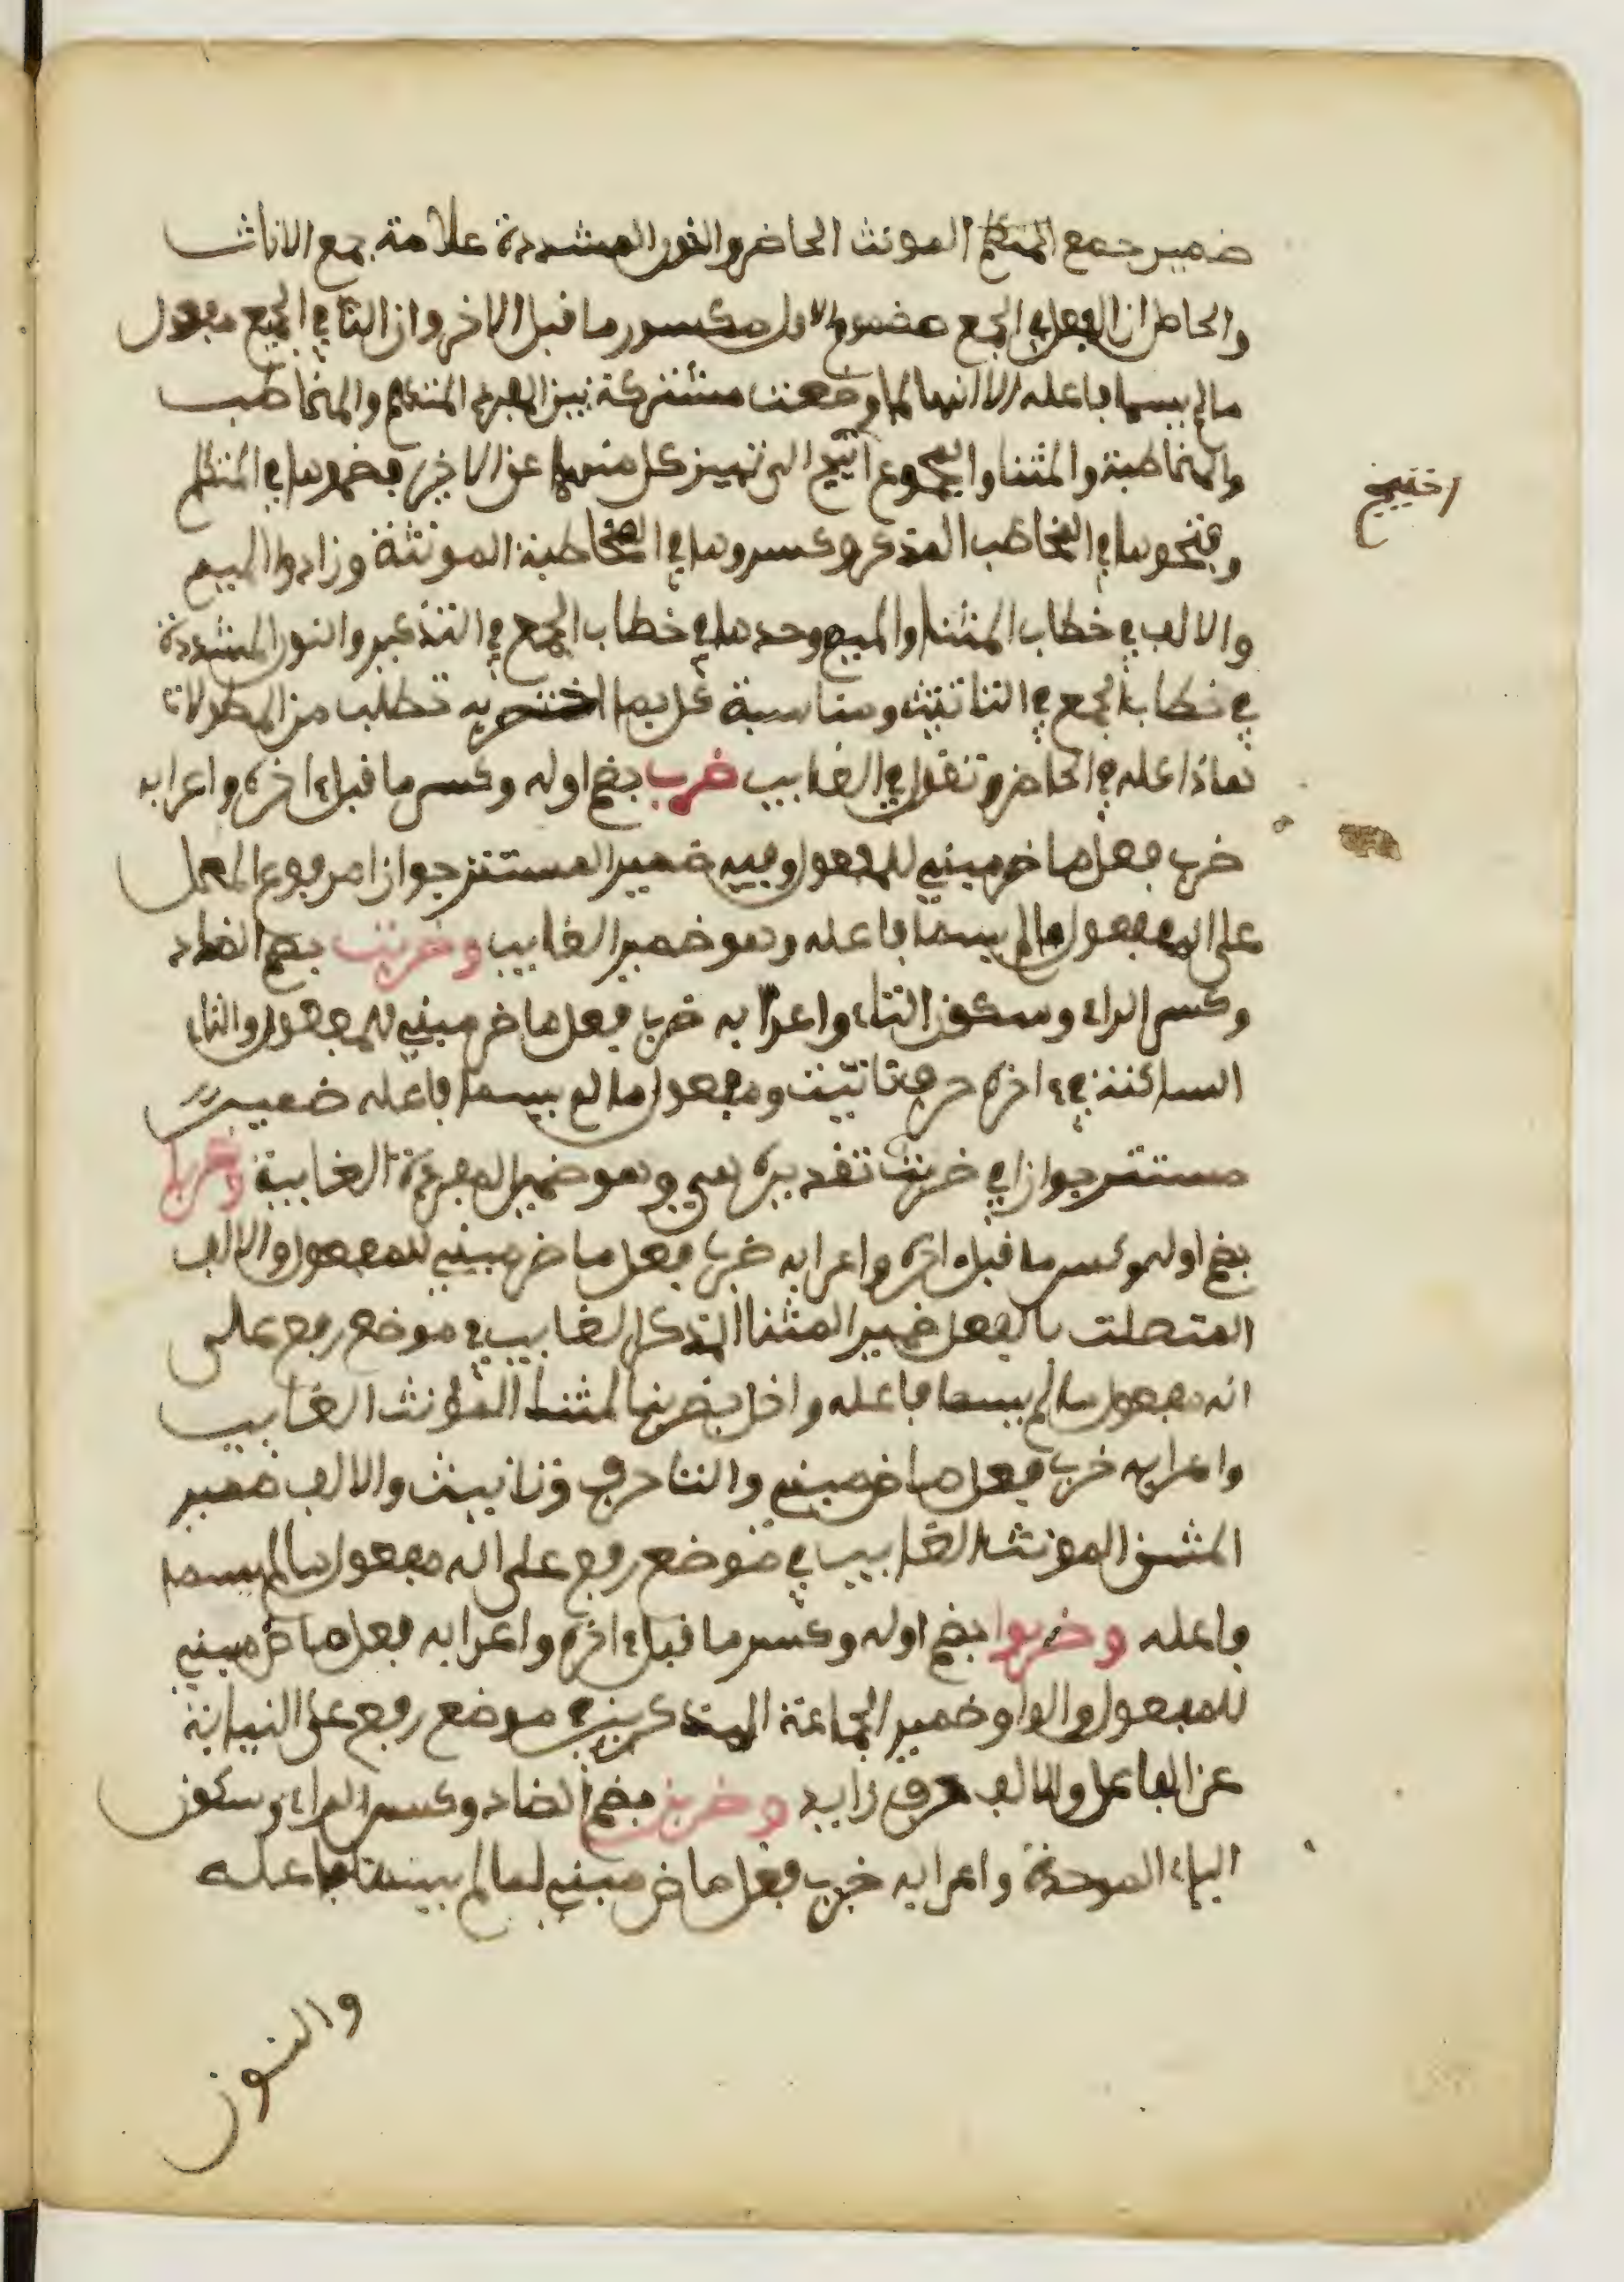 ضمير جمع المتكلم المونث الحاضر والنون المشددة علامة جمع الاناث
والحاصل ان الفعل في الجمع مضموم الاول مكسور ما قبل الاخر وان التا في الجميع مفعول
مالم يسما فاعله الا انها لما وضعت مشتركة بين المفرد المتكلم والمخاطب
والمخاطبة والمثنا والمجموع احتيج الى تمييز كل منها عن الاخر فضموها في المتكلم
احتيج
وفتحوها في المخاطب المذكر وكسروها في المخاطبة المونثة وزادوا الميم
والالف في خطاب المثنا والميم وحدها في خطاب الجمع في التذكير والنون المشددة
في خطاب الجمع في التانيث ومناسبة كل بما اختص به تطلب من المطولات
هاذا كله في الحاضر وتقول في الغايب ضرب بضم اوله وكسر ما قبل ءاخره واعرابه
ضرب فعل ماض مبني للمفعول وفيه ضمير المستتر جوازا مرفوع المحل
على المفعول مالم يسما فاعله وهو ضمير الغايب وضربت بضم الضاد
وكسر الراء وسكون التاء واعرابه ضرب فعل ماض مبني للمفعول والتاء
الساكنة في ءاخره حرف تانيث ومفعول ما لم يسما فاعله ضمير
مستتر جوازا في ضربت تقديره هي وهو ضمير المفردة الغايبة وضربا
بضم اوله وكسر ما قبل اخره واعرابه ضربا فعل ماض مبني للمفعول والالف
المتصلت بالفعل ضمير المثنا المذكر الغايب في موضع رفع على
انه مفعول مالم يسما فاعله واصل ضربتا لمثنا المونث الغايب
واعرابه ضرب فعل ماض مبني والتا حرف تانيث والالف ضمير
المثنى المونث الغايب في موضع رفع على انه مفعول مالم يسما
فاعله وضربوا بضم اوله وكسر ما قبل ءاخره واعرابه فعل ماض مبني
للمفعول والواو ضمير الجماعة المذكرين في موضع رفع على النيابة
عن الفاعل والالف حرف زايد وضربن بضم الضاد وكسر الراء وسكون
الباء الموحدة واعرابه ضرب فعل ماض مبني لما لم يسما فاعله
والنون